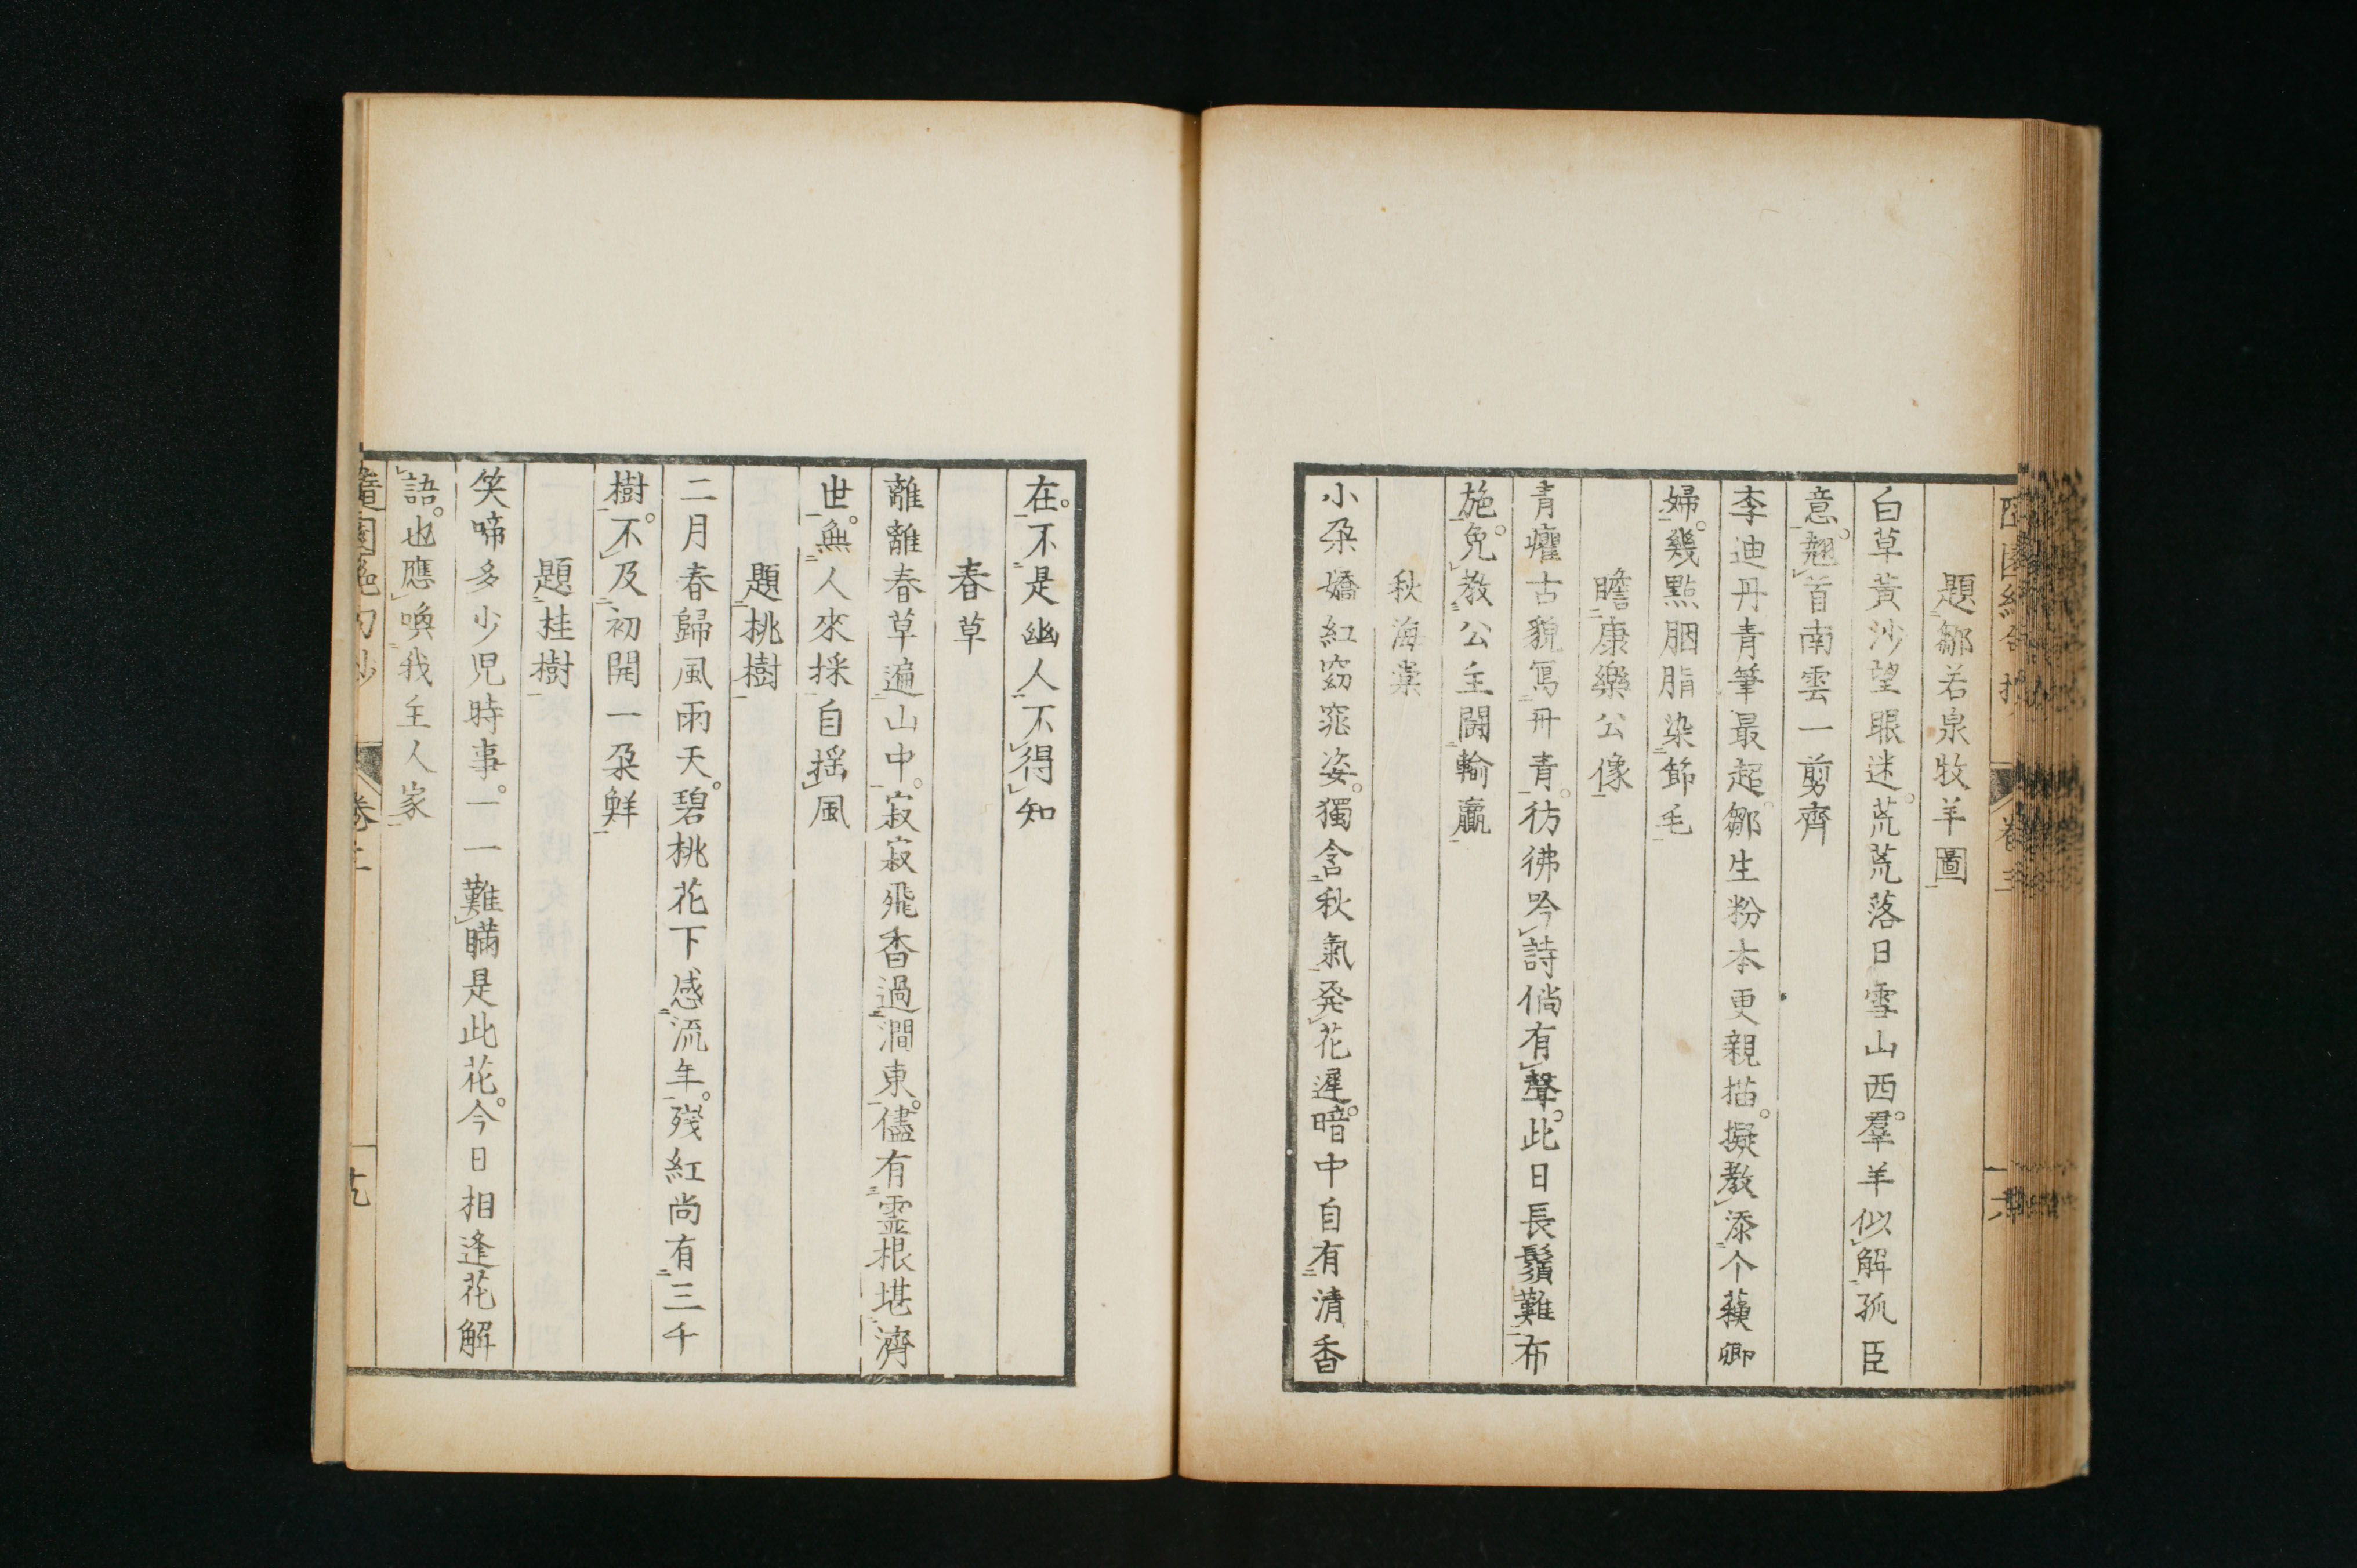 題鄒若泉牧羊圖
白草黃沙望眼迷。荒荒落日雪山西。羣羊似解孤臣
意。翹首南雲一剪齊
李迪丹青筆最超。鄒生粉本更親描。擬教添个蘓卿
婦。幾點胭脂染節毛
瞻康樂公像
青癯古貌寫丹青。彷彿吟詩倘有聲。此日長鬚難布
施。免教公主鬪輸贏
秋海棠
小朶嬌紅窈窕姿。獨含秋氣発花遲。暗中自有清香
在。不是幽人不得知
春草
離離春草遍山中。寂寂飛香過澗東。儘有霊根堪濟
世。無人來採自揺風
題桃樹
二月春歸風雨天。碧桃花下感流年。残紅尚有三千
樹。不及初開一朶鮮
題桂樹
笑啼多少児時事。一一難瞞是此花。今日相逢花解
語。也應喚我主人家